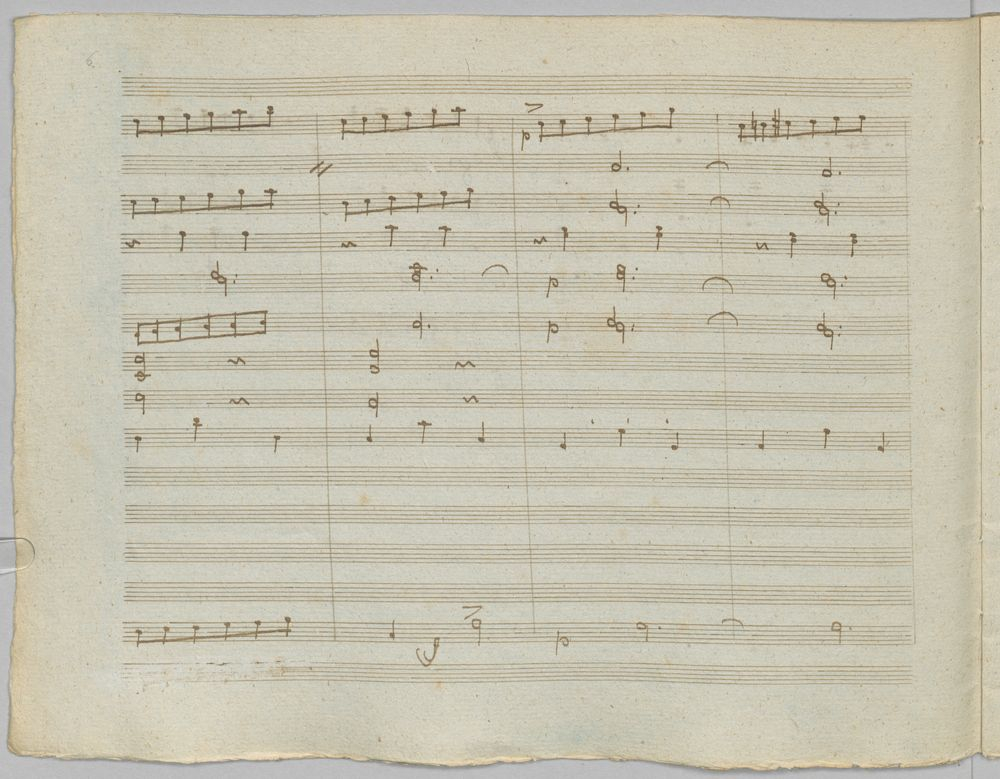 6.
p
p
p
f
p